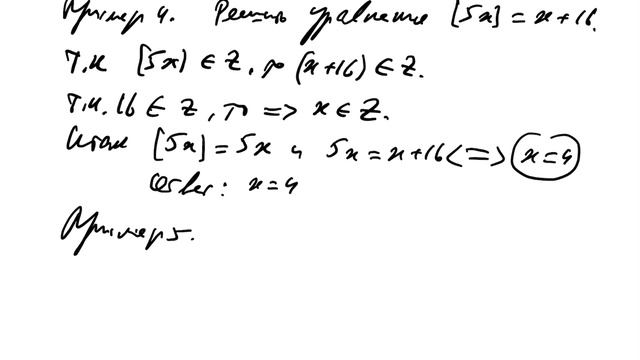 Пример 4. Решить уравнение [5x] = x+16.
т.к [5x] ∈ Z, то (x+16) ∈ Z.
т.к. 16 ∈ Z, то => x ∈ Z.
Итак [5x] = 5x и 5x = x+16 <=> x=4
Ответ: x=4
Пример 5.